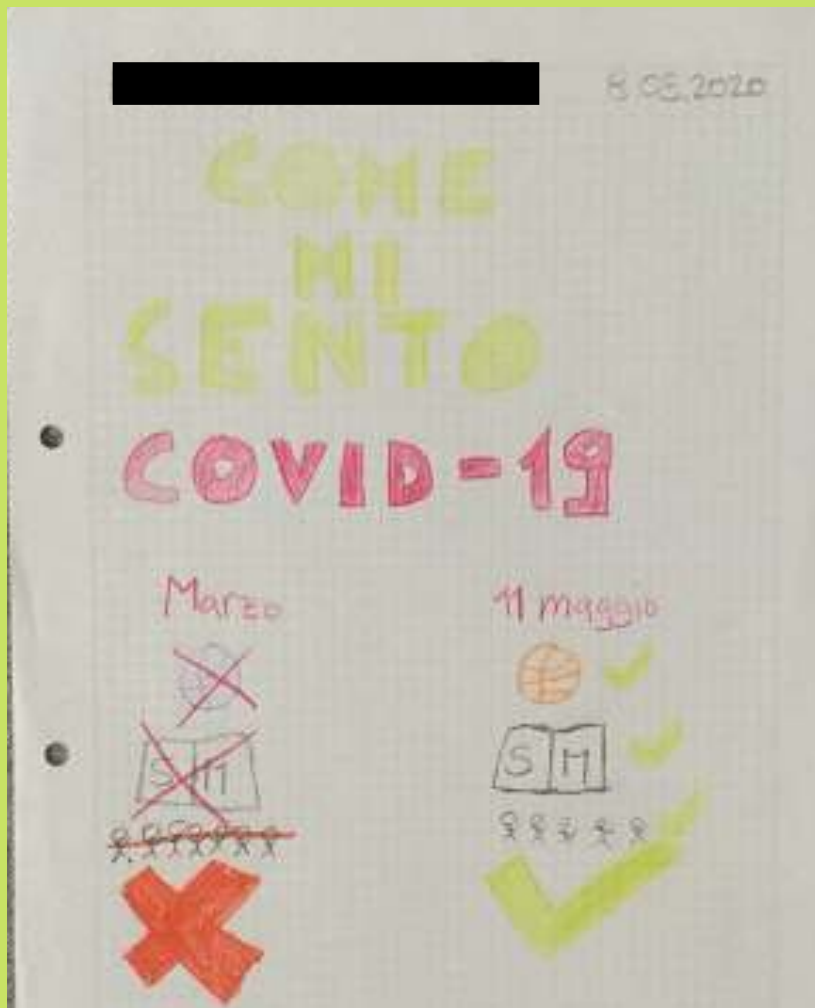 8.05.2020
COME
MI
SENTO
COVID-19
Marzo 11 maggio
S M S M